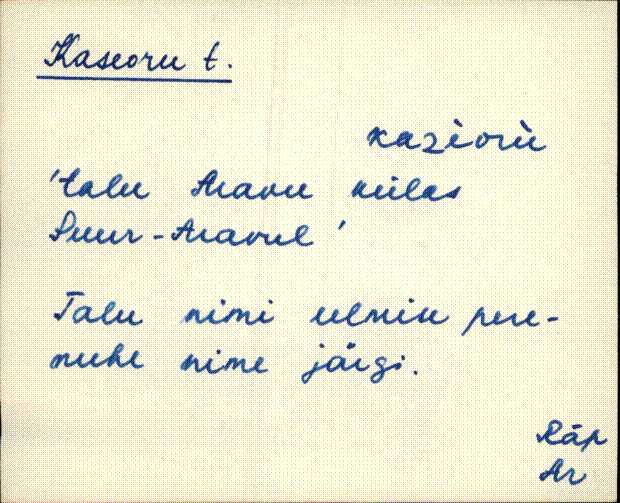 Kaseoru t.
kazèorù
'talu Aravu külas
Suur-Aravul'
Talu nimi eelmise pere-
mehe nime järgi.
Räp
Ar